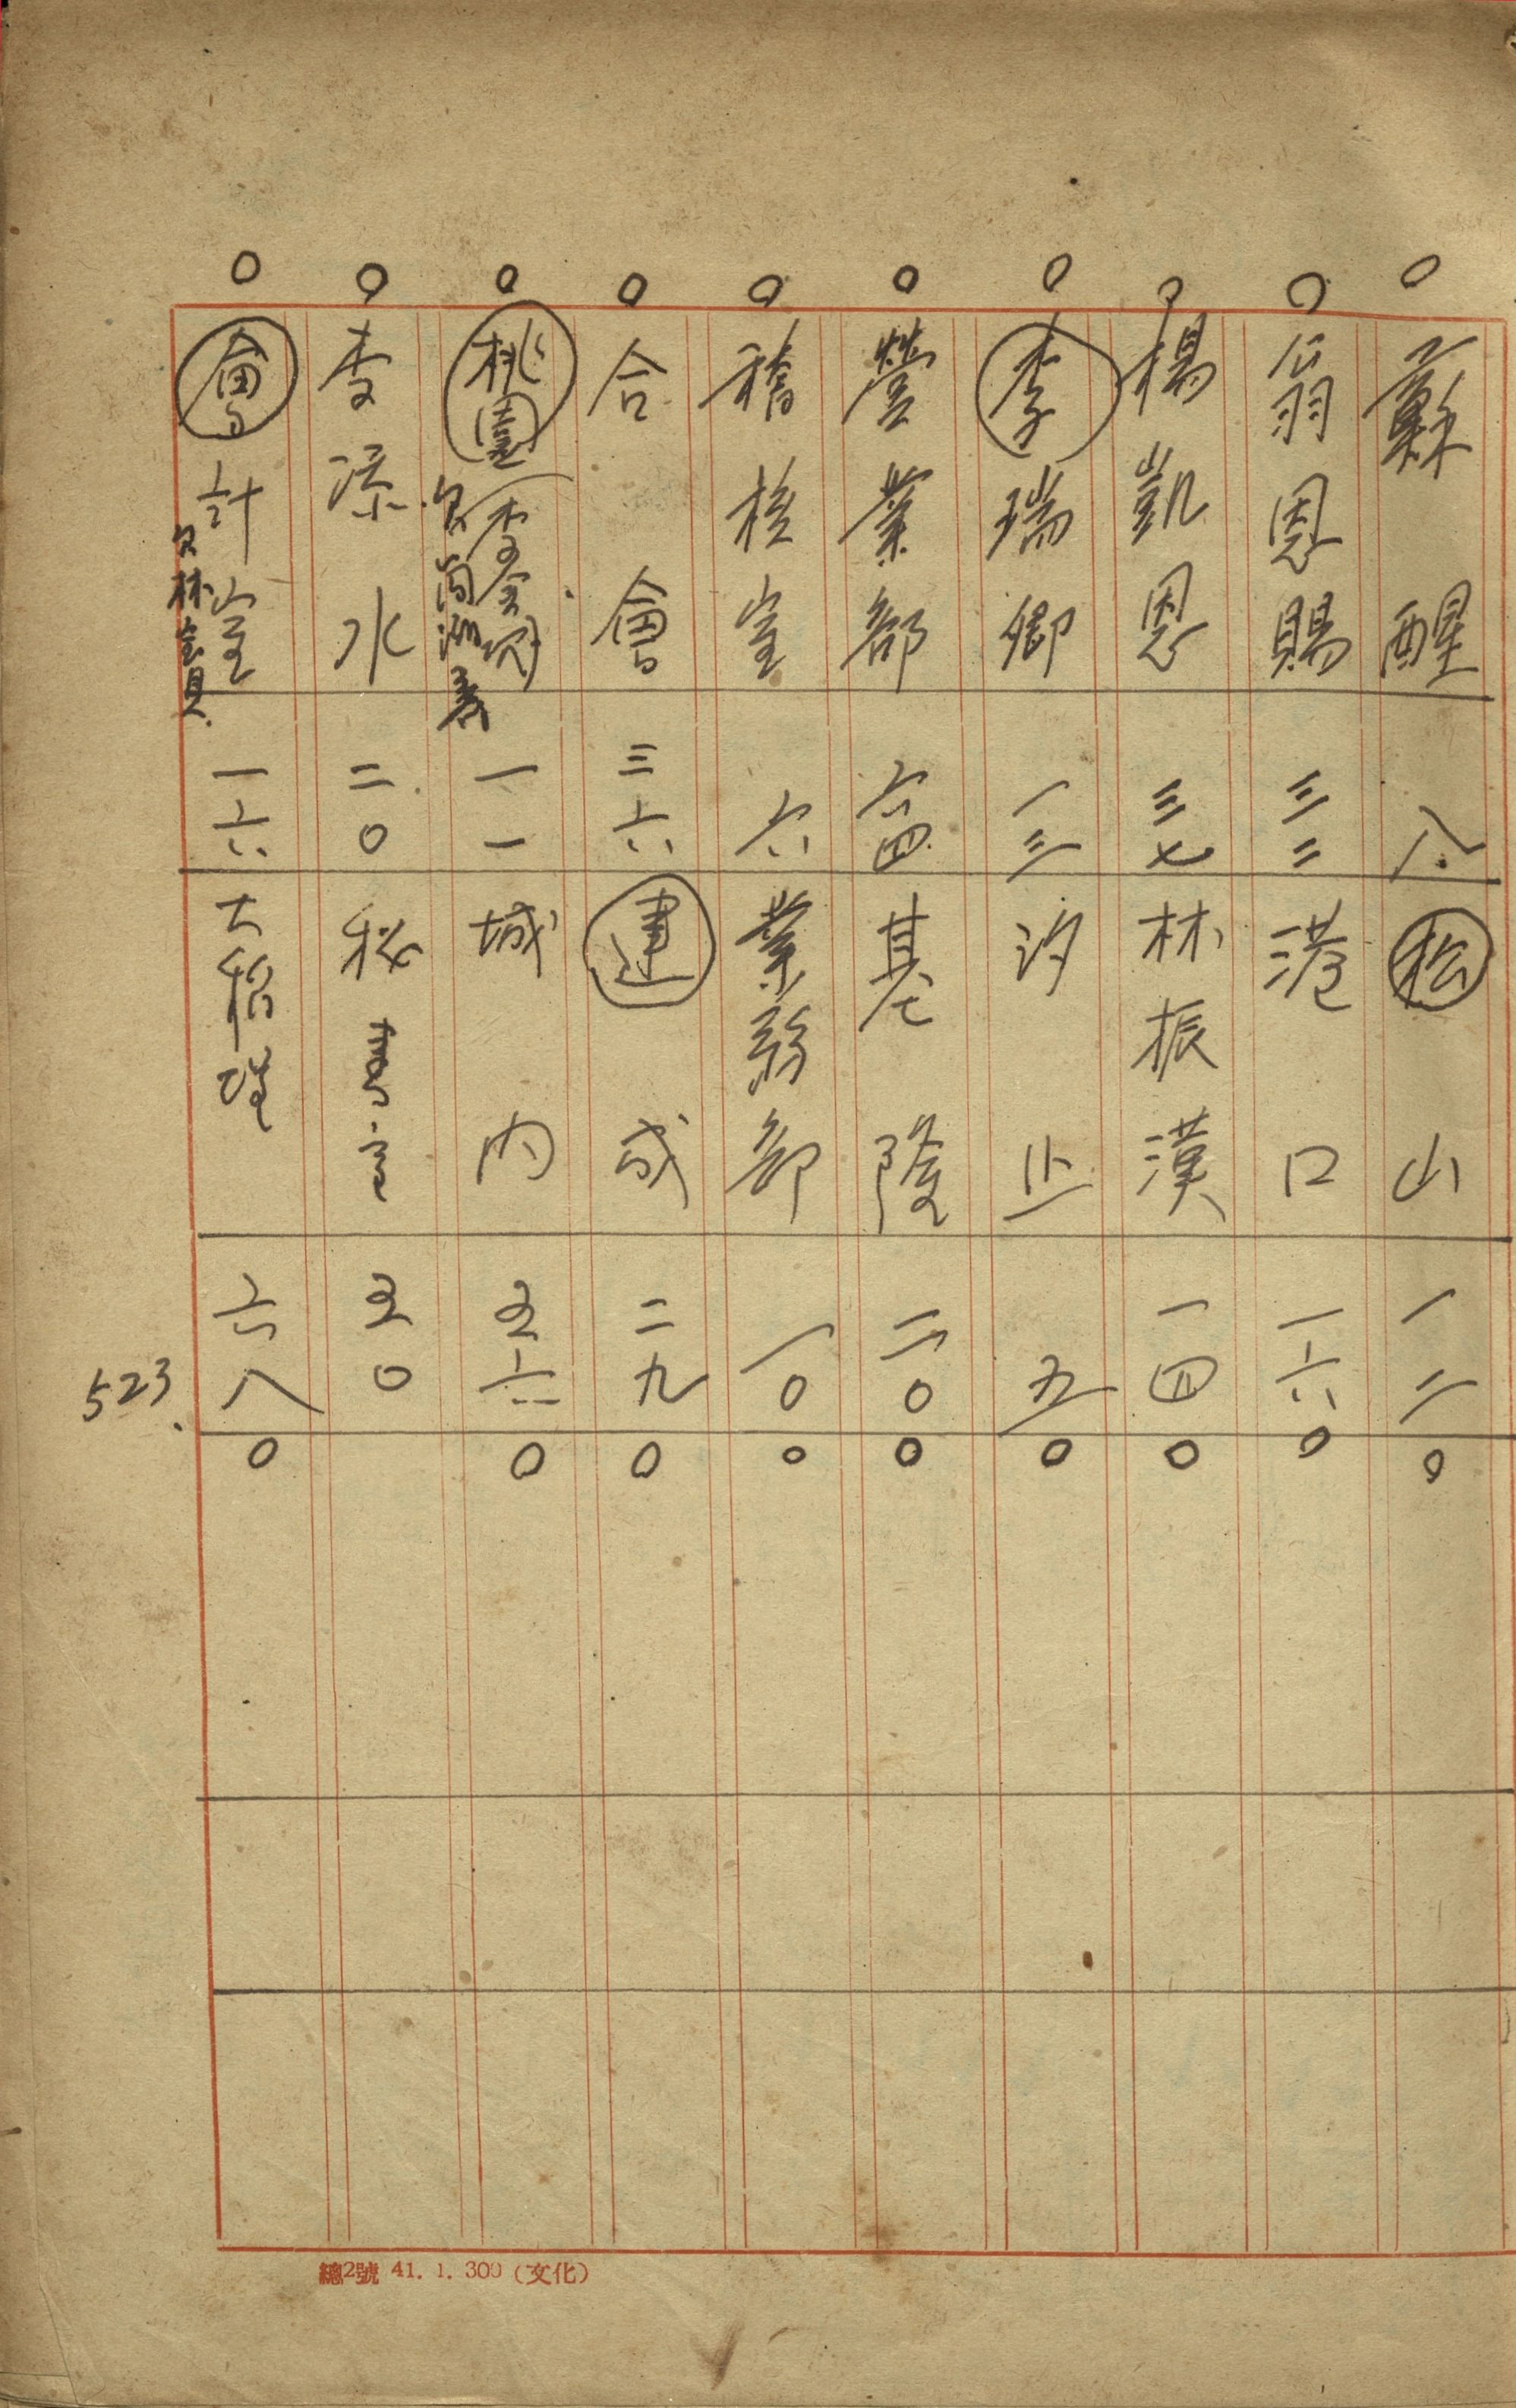 〇 蘇醒 八 松山 一二 〇
〇 翁恩賜 三二 港口 一六 〇
〇 楊凱恩 三七 林振漢 一四 〇
〇 李瑞卿 一三 汐止 五 〇
〇 營業部 六四 基隆 二〇 〇
〇 稽核室 六 業務部 一〇 〇
〇 合會 三六 建成 二九 〇
〇 桃園 李金 一一 城內 五六 〇
〇 李添水 二〇 秘書室 五〇
〇 會計室 一六 大稻埕 六八 〇
欠林
523.
總2號 41. 1. 300（文化）